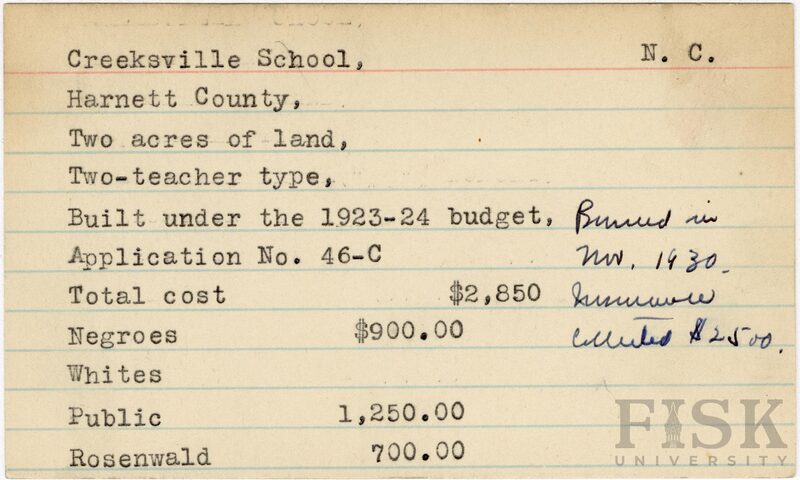 Creeksville School, N. C.
Harnett County,
Two acres of land,
Two-teacher type,
Built under the 1923-24 budget, Burned in
Application No. 46-C Nov. 1930.
Total cost $2,850 Insurance
Negroes $900.00 collected $2500.
Whites
Public 1,250.00
Rosenwald 700.00
FISK
UNIVERSITY